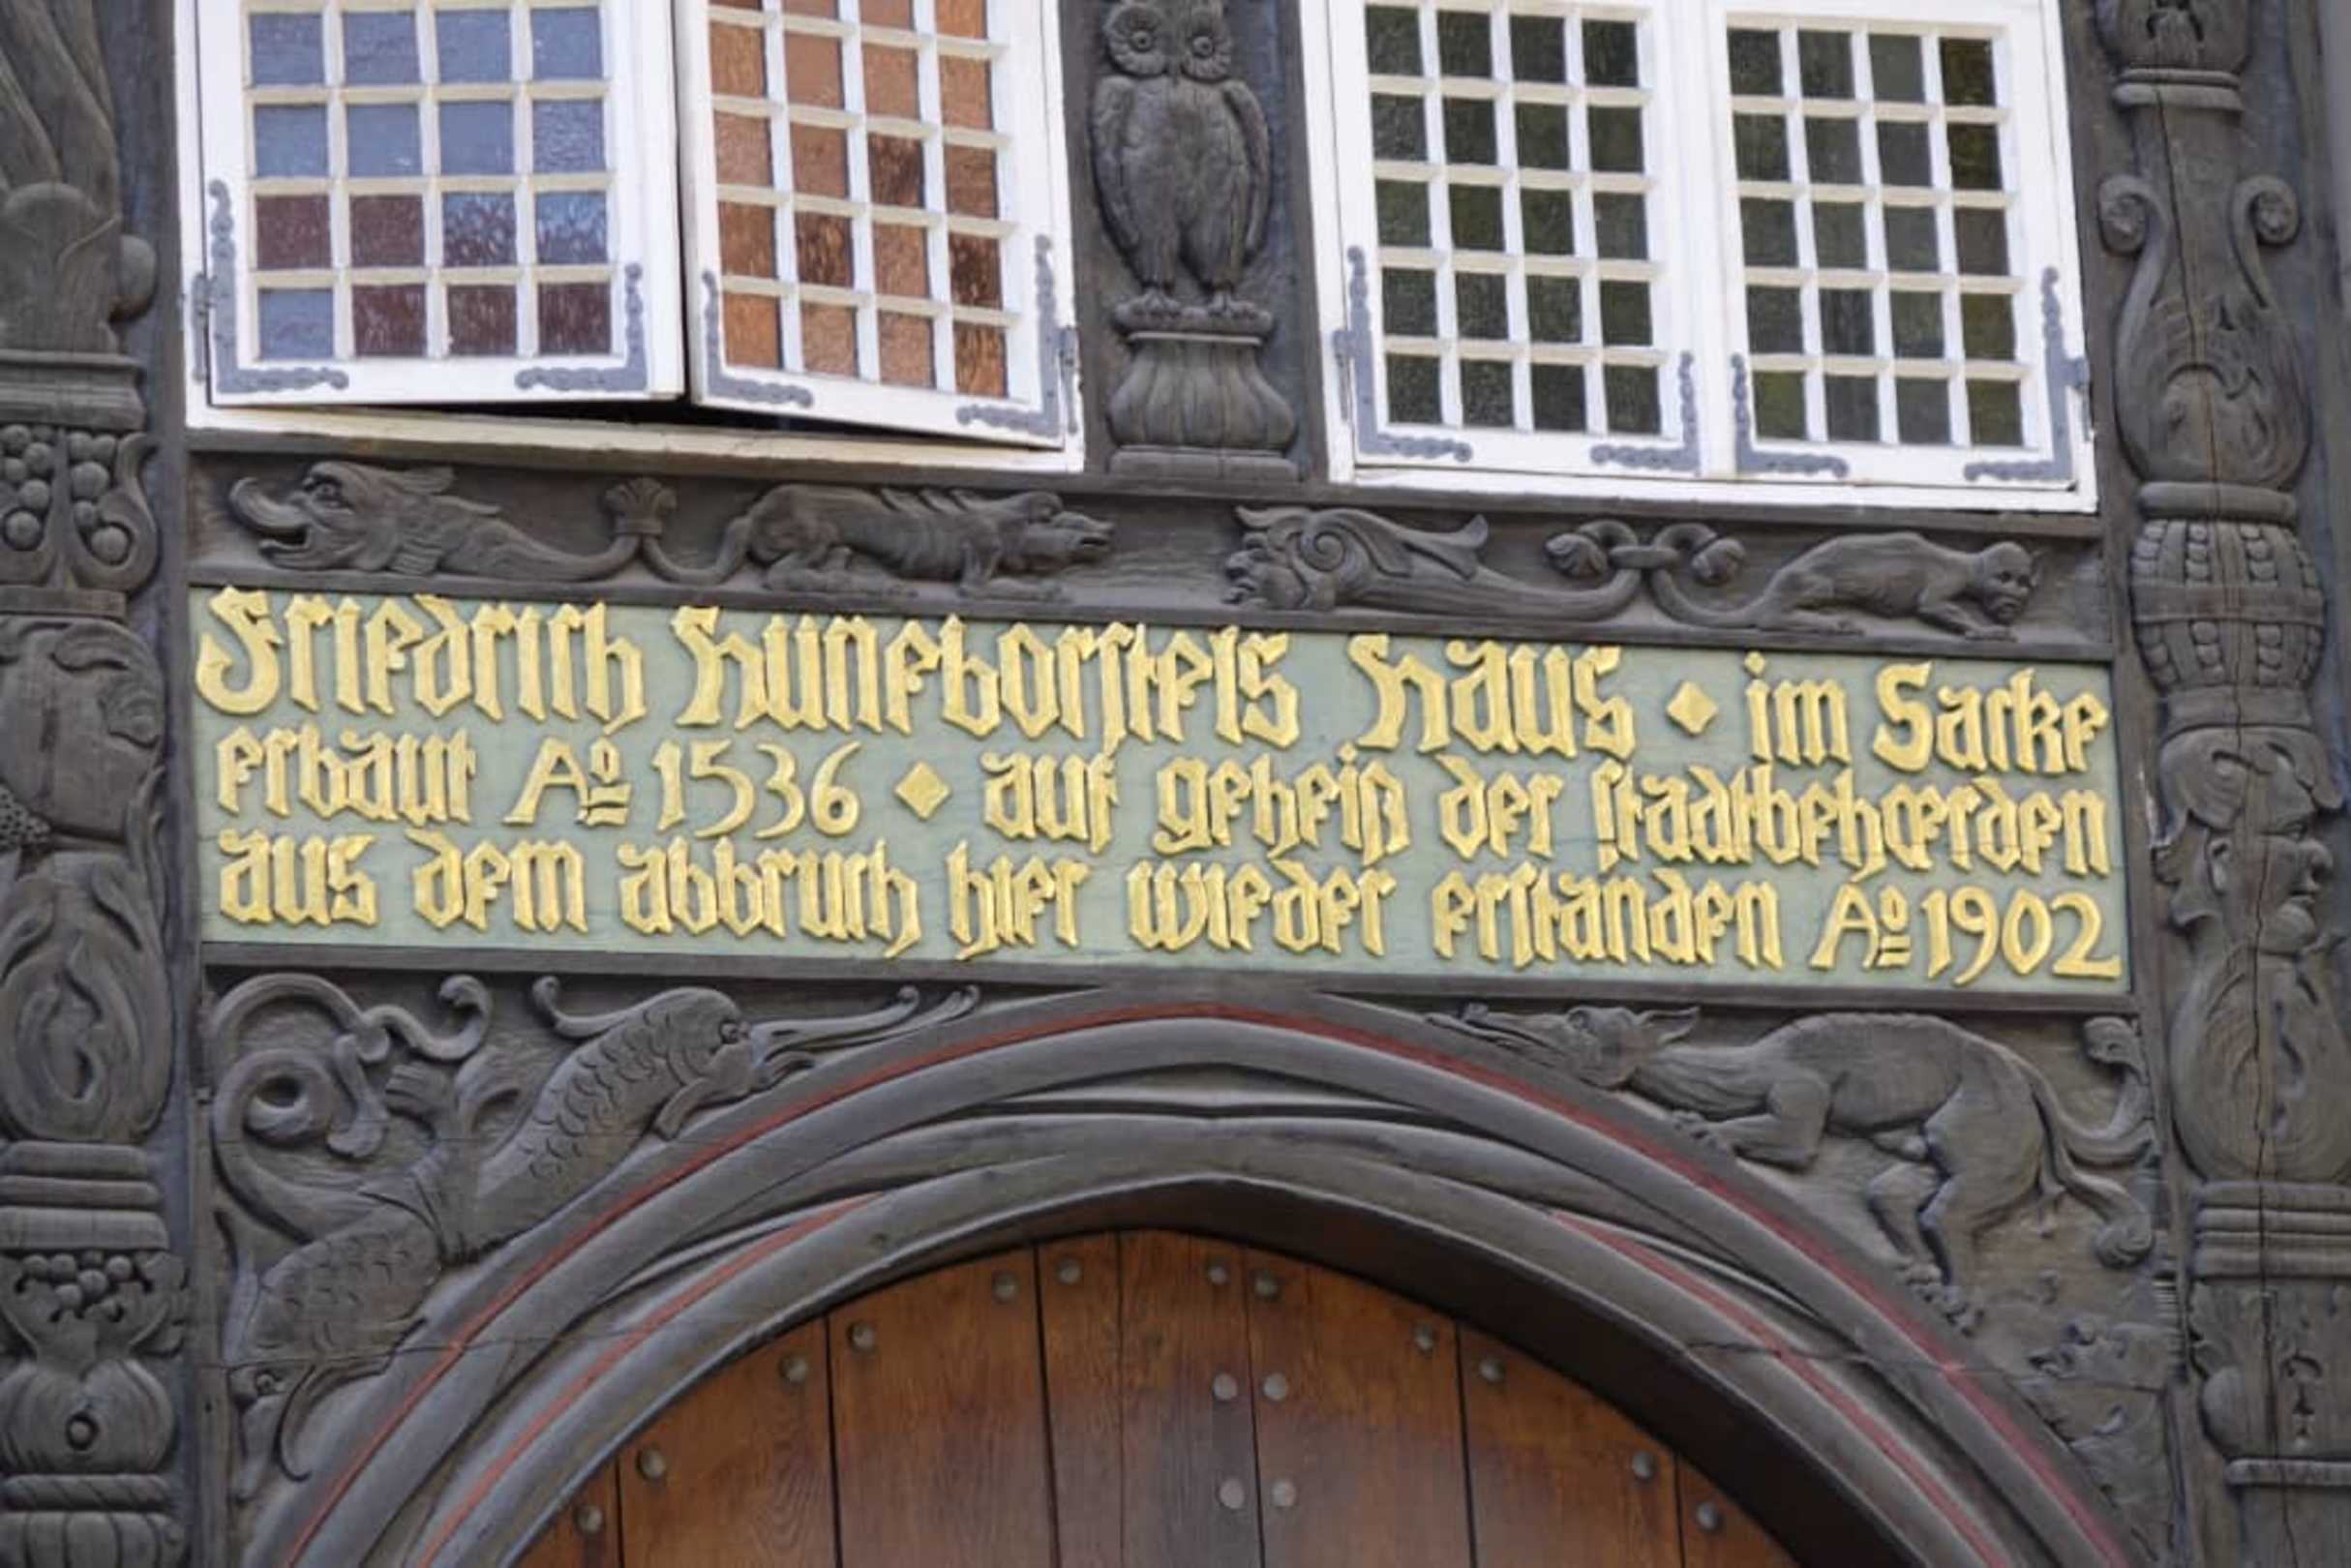 Friedrich Huneborſtels Haus ⬥ im Sacke
erbaut Aº 1536 ⬥ auf geheiß der ſtadtbehœrden
aus dem abbruch hier wieder erſtanden Aº 1902